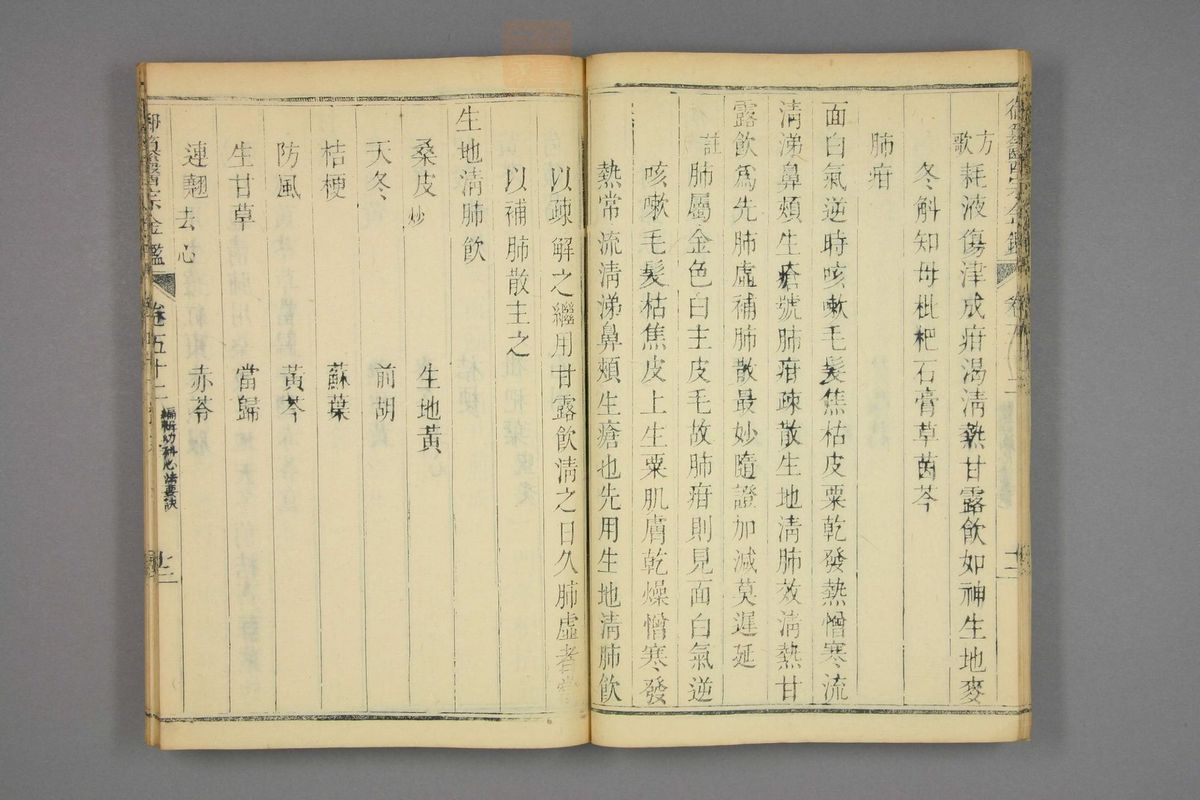 方歌 耗液傷津成疳渴清熱甘露飮如神生地麥
冬斛知母枇杷石膏草茵芩
肺疳
面白氣逆時咳嗽毛髮焦枯皮粟乾發熱憎寒流
淸涕鼻頰生瘡號肺疳疎散生地淸肺效淸熱甘
露飮爲先肺虛補肺散最妙隨證加減莫遲延
註 肺屬金色白主皮毛故肺疳則見面白氣逆
咳嗽毛髮枯焦皮上生粟肌膚乾燥憎寒發
熱常流淸涕鼻頰生瘡也先用生地淸肺飮
以疎解之繼用甘露飮淸之日久肺虛者當
以補肺散主之
生地淸肺飮
桑皮炒 生地黃
天冬 前胡
桔梗 蘇葉
防風 黃芩
生甘草 當歸
連翹去心 赤苓
醫宗金鑑 卷五十二 編輯幼科心法要訣